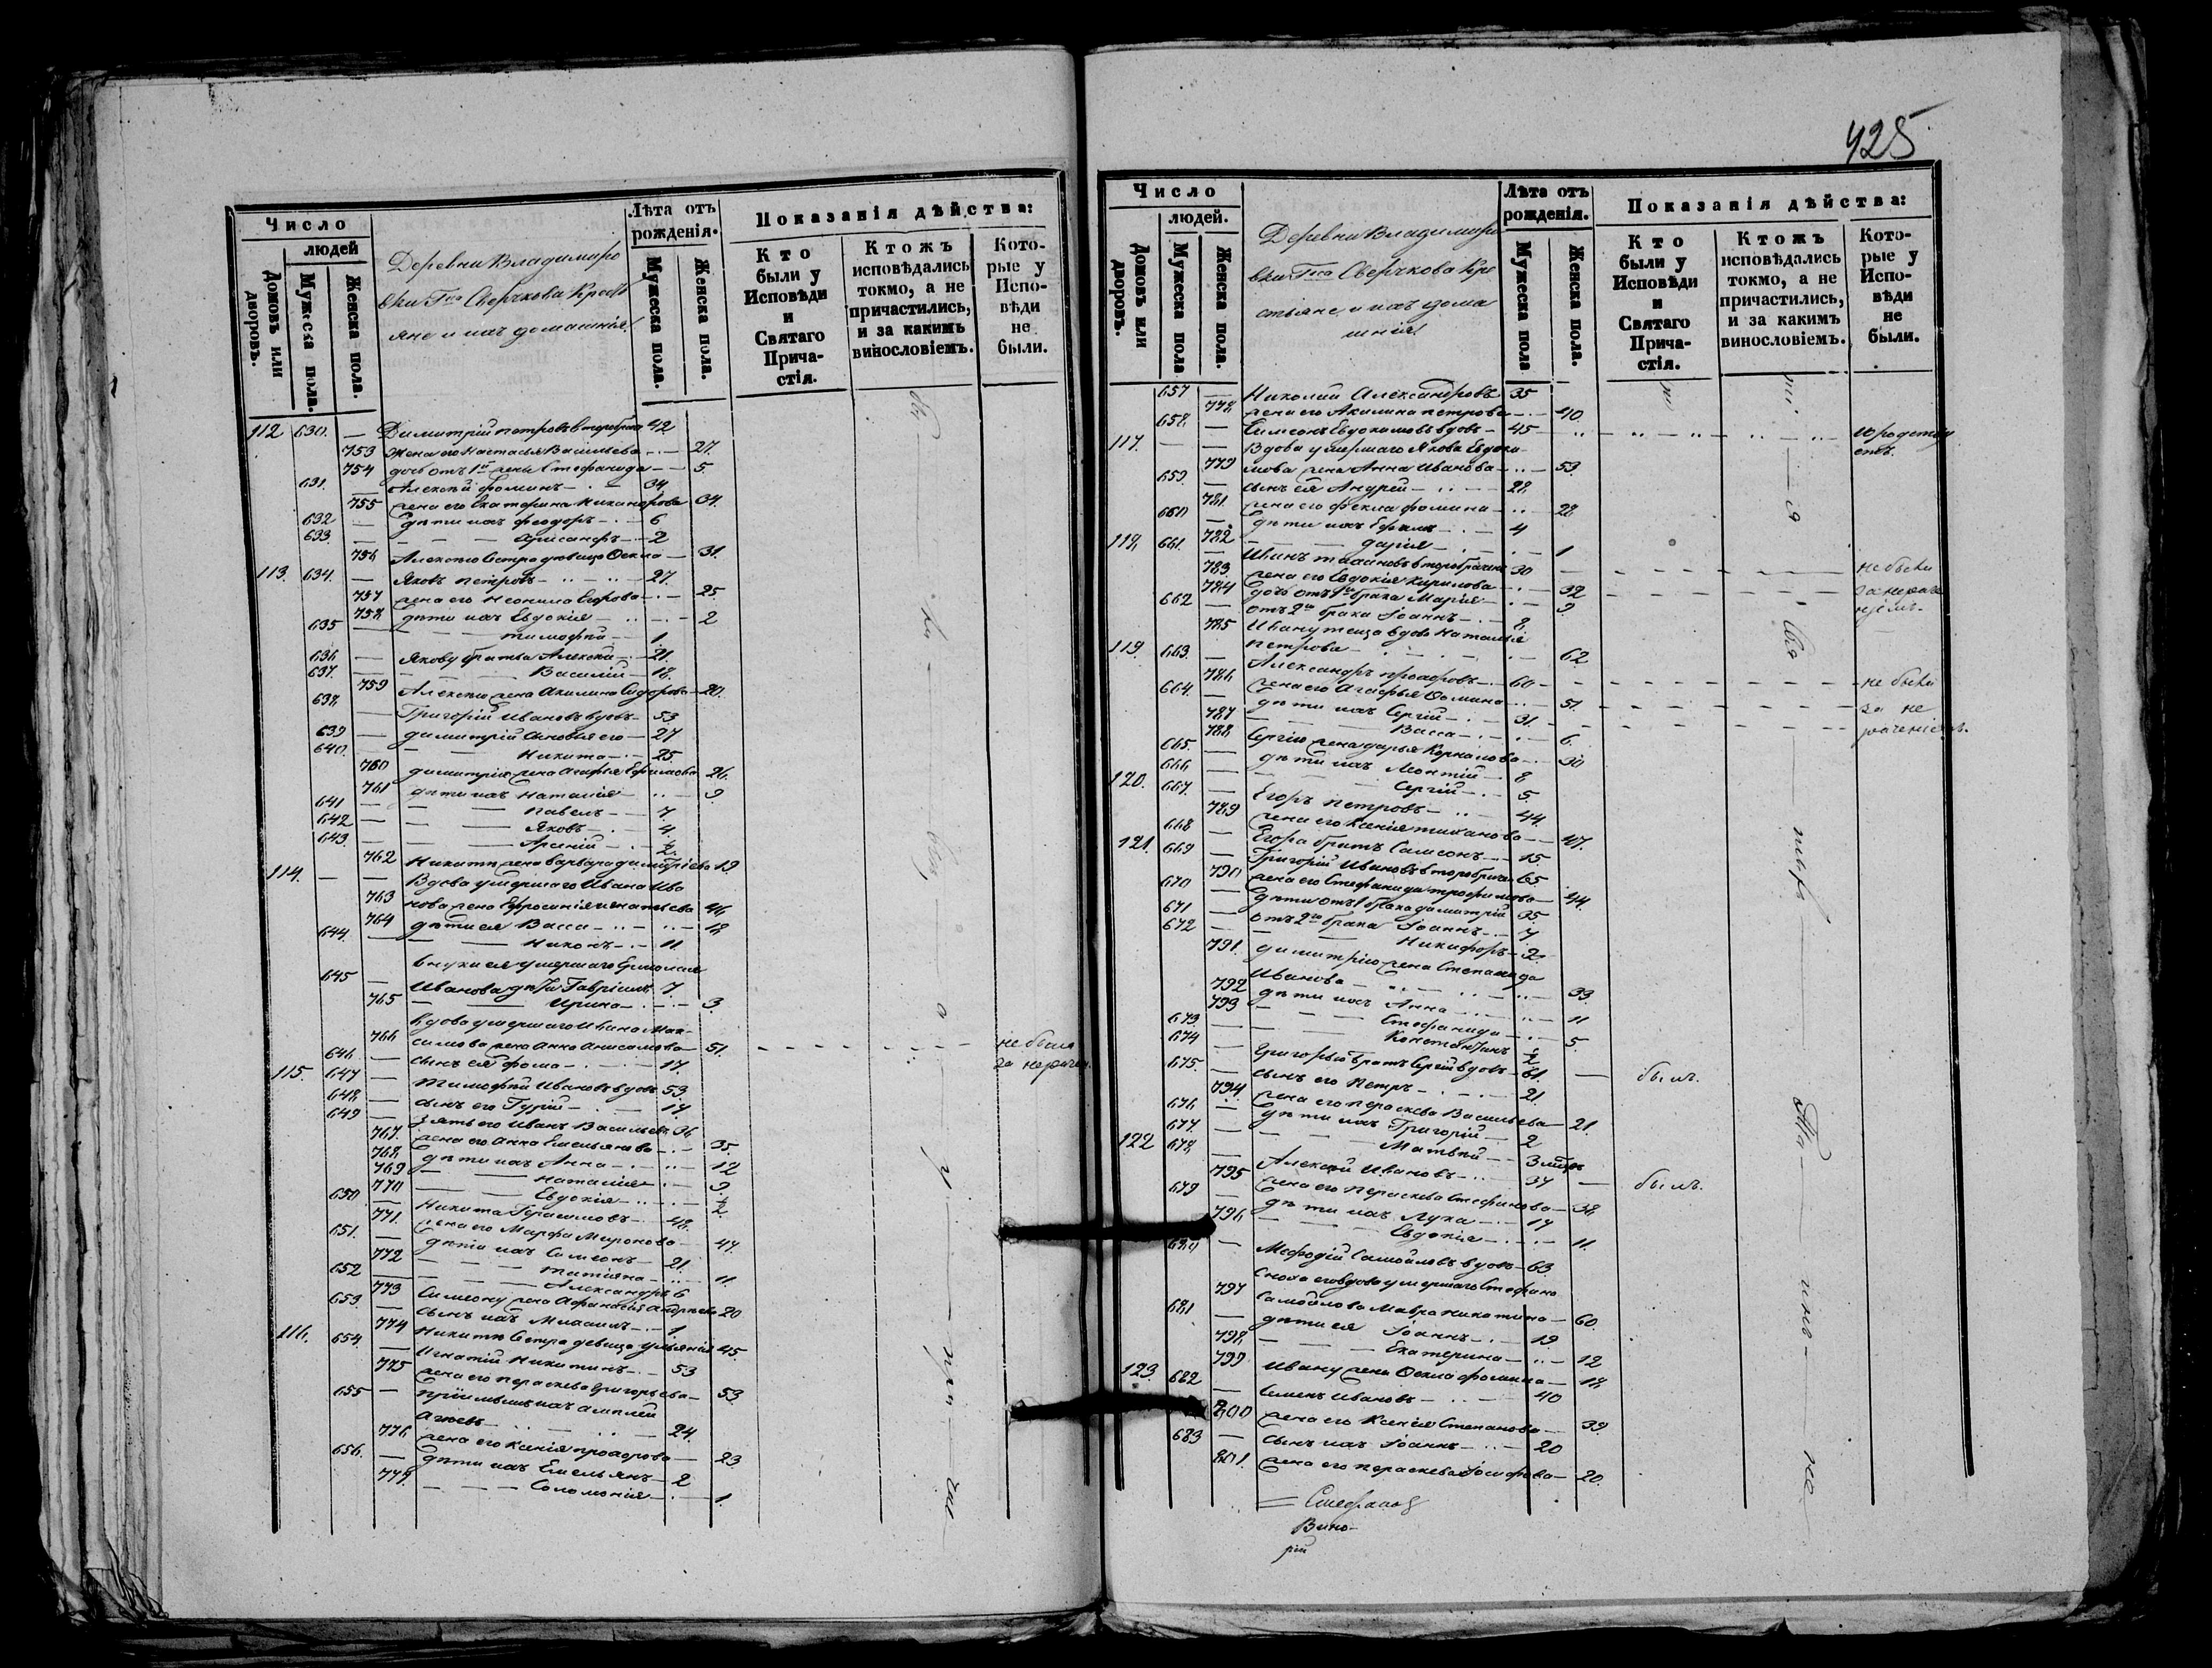 Число
людей
Домовъ или дворовъ.
Мужеска пола.
Женска пола.
Деревни Владимиро
вки Гна Сверчкова Кресть
яне и ихъ домашнія
Лѣта отъ рожденія.
Мужеска пола.
Женска пола.
Показанія дѣйства:
Кто были у Исповѣди и Святаго Прича-стія.
Ктожъ исповѣдались токмо, а не причастились, и за какимъ винословіемъ.
Кото-рые у Испо-вѣди не были.
112 630. — Димитрій Петровъ второбрач 42
753 Жена его Настасья Васильева — 27.
754 дочь отъ 1й жены Стефанида — 5.
631. — Алексѣй Фоминъ — 34
755 жена его Екатерина Никанорова 34.
632 — дѣти ихъ Феодоръ — 6
633. — — — 2
756 Алексѣю Сестра девица Фекла — 31.
113. 634. — Яковъ Петровъ — 27.
757 жена его Неонила Егорова — 25.
758. дѣти ихъ Евдокія — 2
635 — — Тимофей — 1.
636 — Якову братья Алексѣй — 21.
637. — — Василій — 18.
759 Алексѣя жена Акилина Сидорова — 20.
638. — Григорій Ивановъ вдовъ — 53
639 — Димитрій сыновья его — 27
640. — — Никита — 25.
760 Димитрія жена Агафія Ефимова 26.
761 дѣти ихъ Наталія — 9
641 — — Павелъ — 7
642 — — Яковъ — 4.
643. — — Арсеній — ½
762 Никиты жена Варвара Димитріева 19
114. — — Вдова умершаго Ивана Ива
763 нова жена Ефросинія Игнатьева 46
764 дѣти ея Васса — 18
644. — — Никонъ — 11.
Внуки ея умершаго Ермолая
645 — Иванова дѣти Гавріилъ 7.
765 — — Ирина — 3.
Вдова умершаго Ивана Мак-
766 симова жена Анна Анисимова — 51. — не была
646. — сынъ ея Фома — 17 за нерачен.
115. 647 — Тимофей Ивановъ вдовъ 53.
648 — сынъ его Гурій — 17
649 — Зять его Иванъ Васильевъ 36
767. жена его Анна Емельянова — 35.
768. дѣти ихъ Анна — 12
769 — Наталія — 9
770 — Евдокія — ½
650 — Никита Герасимовъ — 48.
771. жена его Марфа Миронова — 47.
651. — дѣти ихъ Симеонъ — 21.
772 — — Татіяна — 11.
652 — — Александръ 6
773 Симеону жена Афанасія Андреева 20
653. — сынъ ихъ Михаилъ — 1.
774 Никиты Сестра девица Ульянія 45.
116. 654. — Игнатій Никитинъ — 53
775 жена его Параскева Григорьева — 53.
655 — пріимышъ ихъ
— 24.
776. жена его Ксенія Прохорова — 23
656. — дѣти ихъ Емельянъ — 2
777. — — Соломонія — 1.
425
Число
людей.
Домовъ или дворовъ.
Мужеска пола
Женска пола.
Деревни Владимиро
вки Гна Сверчкова Кре
стьяне и ихъ дома
шнія
Лѣта отъ рожденія.
Мужеска пола
Женска пола.
Показанія дѣйства:
Кто были у Исповѣди и Святаго Прича-стія.
Ктожъ исповѣдались токмо, а не причастились, и за какимъ винословіемъ.
Кото-рые у Испо-вѣди не были.
657 — Николай Александровъ 35
778. жена его Акилина Петрова — 40.
658. — Симеонъ Евдокимовъ вдовъ — 45
117. — — Вдова умершаго Якова Евдоки-
779 мова жена Анна Иванова — 53.
659. — сынъ ея Андрей — 28.
781. жена его Фекла Фомина — 28
660 — дѣти ихъ Ефимъ — 4
782 — Дарія — 1
118. 661. — Иванъ второбрачн 30 — не были
783. жена его Евдокія Кирилова — 32 за нераче
784 дочь отъ 1го брака Марія — 9 ніемъ.
662 — отъ 2го брака Іоаннъ — 8.
785 Ивану теща вдова Наталья
Петрова — 62
119 663. — Александръ Прохоровъ — 60 — не были
786 жена его Агафья Фомина — 51. — за не
664 — дѣти ихъ Сергій — 31. — раченіемъ.
787 — Васса — 6.
788. Сергію жена Дарья Корнилова — 30
665. — дѣти ихъ Леонтій — 8
666 — — Сергій — 5.
120. 667. — Егоръ Петровъ — 44.
789 жена его Ксенія Тиханова — 47.
668 — Егора братъ Самсонъ — 15.
121. 669 — Григорій Ивановъ второбрачн 65.
790 жена его Стефанида Трофимова — 44.
670 — дѣти отъ 1 брака Димитрій 35
671 — отъ 2го брака Іоаннъ — 7
672 — — Никифоръ — 2
791. Димитрію жена Степанида
Иванова — 33.
792 дѣти ихъ Анна — 11
793 — — Стефанида — 5.
673. — — Константинъ ½
674 — Григорья братъ Сергій вдовъ — 61. — былъ.
675. — сынъ его Петръ — 21.
794. жена его Параскева Васильева — 21.
676 — дѣти ихъ Григорій — 2
677. — — Матвей — 3 мѣсяц
122 678. — Алексѣй Ивановъ — 37 — былъ.
795 жена его Параскева Стефанова — 38.
679 — дѣти ихъ Лука — 17
796 — — Евдокія — 11.
680 — Мефодій Самойловъ вдовъ — 63.
Сноха его вдова умершаго Стефана
797 Самойлова Мавра Никитина — 60.
681 — дѣти ея Іоаннъ — 19
798. — — Екатерина — 12
799 Ивану жена Фекла Фомина — 18.
123. 682 — Семенъ Ивановъ — 40
800 жена его Ксенія Степанова — 39.
683 — сынъ ихъ Іоаннъ — 20
801. жена его Параскева Іосифова — 20.